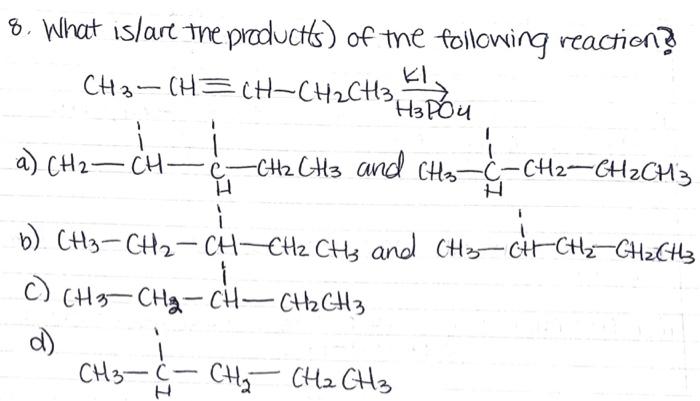 8. What is/are the product(s) of the following reaction?
CH3-CH≡CH-CH2CH3 KI H3PO4
a) CH2-CH-C-CH2CH3 and CH3-C-CH2-CH2CH3
I I I
H H
b) CH3-CH2-CH-CH2CH3 and CH3-CH-CH2-CH2CH3
I I
c) CH3-CH2-CH-CH2CH3
I
d)
I
CH3-C-CH2-CH2CH3
H